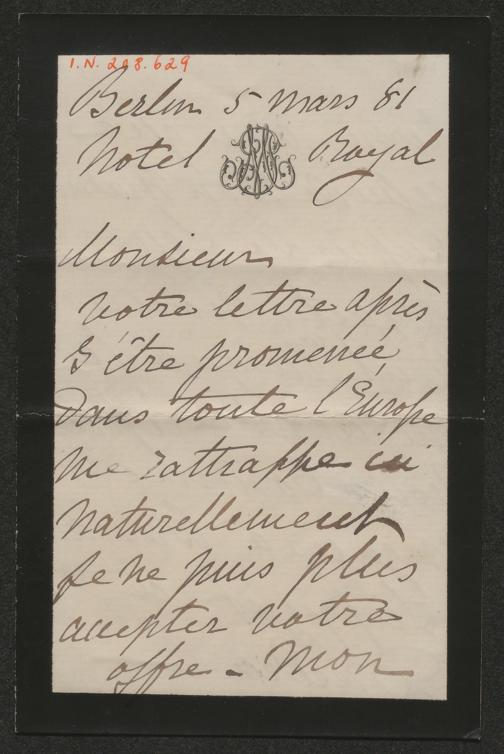 I.N. 208.629
Berlin 5 mars 81
Hotel Royal
Monsieur
Votre lettre après
s'être promenée
dans toute l'Europe
me rattrappe ici
naturellement
je ne puis plus
accepter votre
offre - Mon